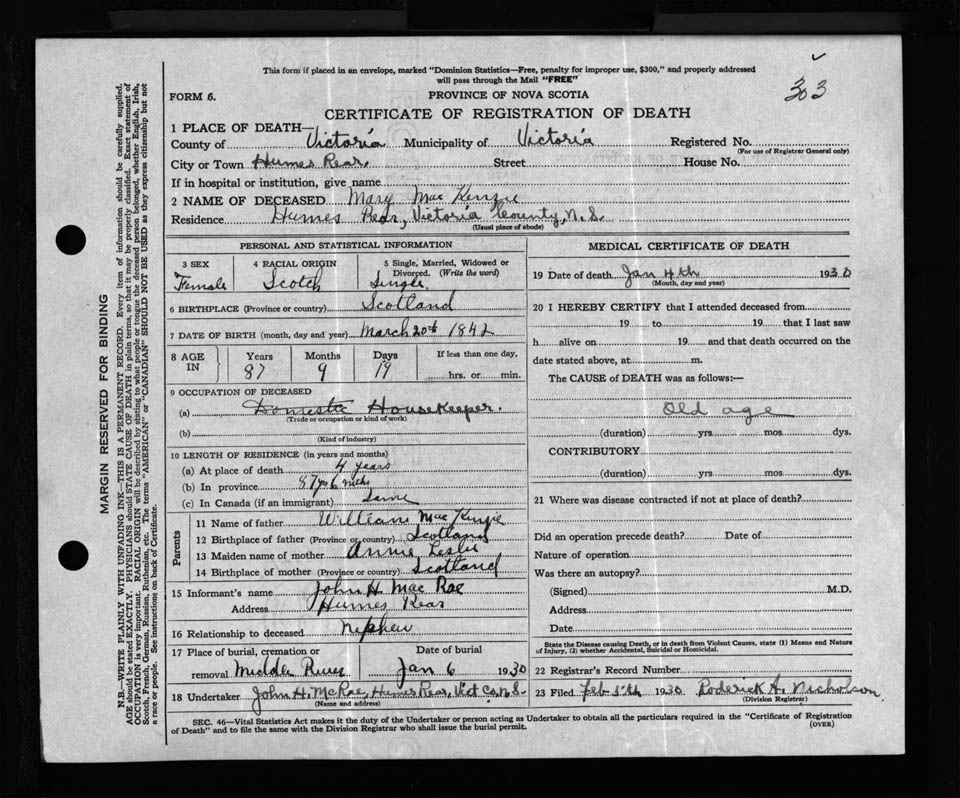 303
This form if placed in an envelope, marked "Dominion Statistics—Free, penalty for improper use, $300," and properly addressed
will pass through the Mail "FREE"
FORM 6.
PROVINCE OF NOVA SCOTIA
CERTIFICATE OF REGISTRATION OF DEATH
1 PLACE OF DEATH—
County of Victoria Municipality of Victoria Registered No.
(For use of Registrar General only)
City or Town Humes Rear, Street House No.
If in hospital or institution, give name
2 NAME OF DECEASED Mary MacKenzie
Residence Humes Rear, Victoria County, N.S.
(Usual place of abode)
PERSONAL AND STATISTICAL INFORMATION
3 SEX
Female
4 RACIAL ORIGIN
Scotch
5 Single, Married, Widowed or
Divorced. (Write the word)
Single
6 BIRTHPLACE (Province or country) Scotland
7 DATE OF BIRTH (month, day and year) March 20th 1842
8 AGE IN
Years Months Days If less than one day,
87 9 19 hrs. or min.
9 OCCUPATION OF DECEASED
(a) Domestic Housekeeper.
(Trade or occupation or kind of work)
(b)
(Kind of industry)
10 LENGTH OF RESIDENCE (in years and months)
(a) At place of death 4 years
(b) In province 87 yrs 6 mths
(c) In Canada (if an immigrant) Same
Parents
11 Name of father William MacKenzie
12 Birthplace of father (Province or country) Scotland
13 Maiden name of mother Annie Leslie
14 Birthplace of mother (Province or country) Scotland
15 Informant's name John H. MacRae
Address Humes Rear
16 Relationship to deceased Nephew
17 Place of burial, cremation or Date of burial
removal Middle River Jan 6 1930
18 Undertaker John H. McRae, Humes Rear, Vict Co. N.S.
(Name and address)
MEDICAL CERTIFICATE OF DEATH
19 Date of death Jan 4th 1930
(Month, day and year)
20 I HEREBY CERTIFY that I attended deceased from
19 to 19 that I last saw
h alive on 19 and that death occurred on the
date stated above, at m.
The CAUSE of DEATH was as follows:—
Old age
(duration) yrs mos dys.
CONTRIBUTORY
(duration) yrs mos dys.
21 Where was disease contracted if not at place of death?
Did an operation precede death? Date of
Nature of operation
Was there an autopsy?
(Signed) M.D.
Address
Date
State the Disease causing Death, or in death from Violent Causes, state (1) Means and Nature
of Injury, (2) whether Accidental, Suicidal or Homicidal.
22 Registrar's Record Number
23 Filed Feb 5th 1930 Roderick A. Nicholson
(Division Registrar)
SEC. 46—Vital Statistics Act makes it the duty of the Undertaker or person acting as Undertaker to obtain all the particulars required in the "Certificate of Registration
of Death" and to file the same with the Division Registrar who shall issue the burial permit.
(OVER)
MARGIN RESERVED FOR BINDING
N.B.—WRITE PLAINLY WITH UNFADING INK—THIS IS A PERMANENT RECORD. Every item of information should be carefully supplied.
AGE should be stated EXACTLY. PHYSICIANS should STATE CAUSE OF DEATH in plain terms, so that it may be properly classified. Exact statement of
OCCUPATION is very important. RACIAL ORIGIN will be described by stating to what people or tongue the deceased person belonged, whether English, Irish,
Scotch, French, German, Russian, Ruthenian, etc. The terms "AMERICAN" or "CANADIAN" SHOULD NOT BE USED as they express citizenship but not
a race or people. See instructions on back of Certificate.